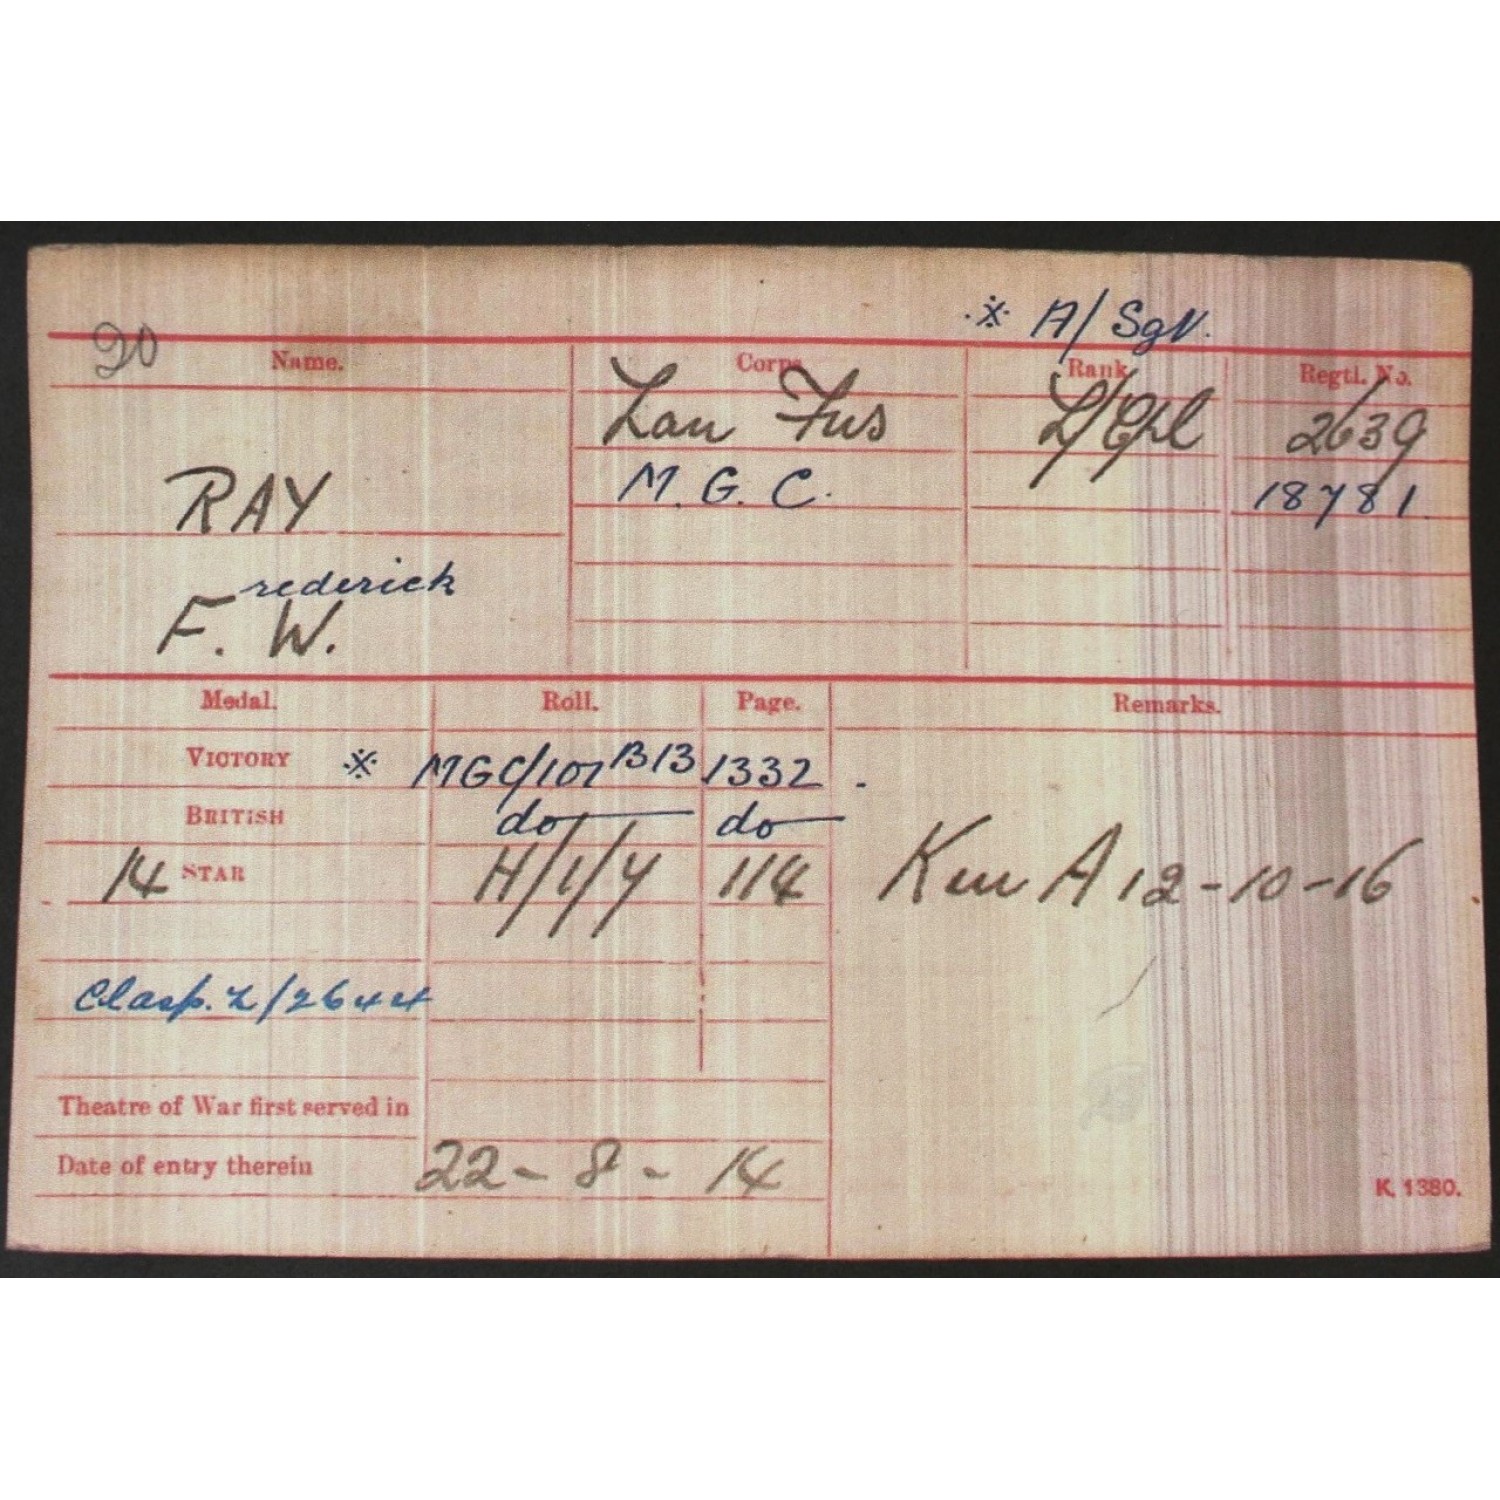 ※ A/Sgt.
20
Name. Corps. Rank. Regtl. No.
Lan Fus L/Cpl 2639
RAY M. G. C. 18781.
Frederick
F. W.
Medal. Roll. Page. Remarks.
VICTORY ※ MGC/101 B13 1332.
BRITISH do do
14 STAR H/1/4 114 Ken A 12-10-16
Clasp. L/2644
Theatre of War first served in
Date of entry therein 22 - 8 - 14
K. 1380.